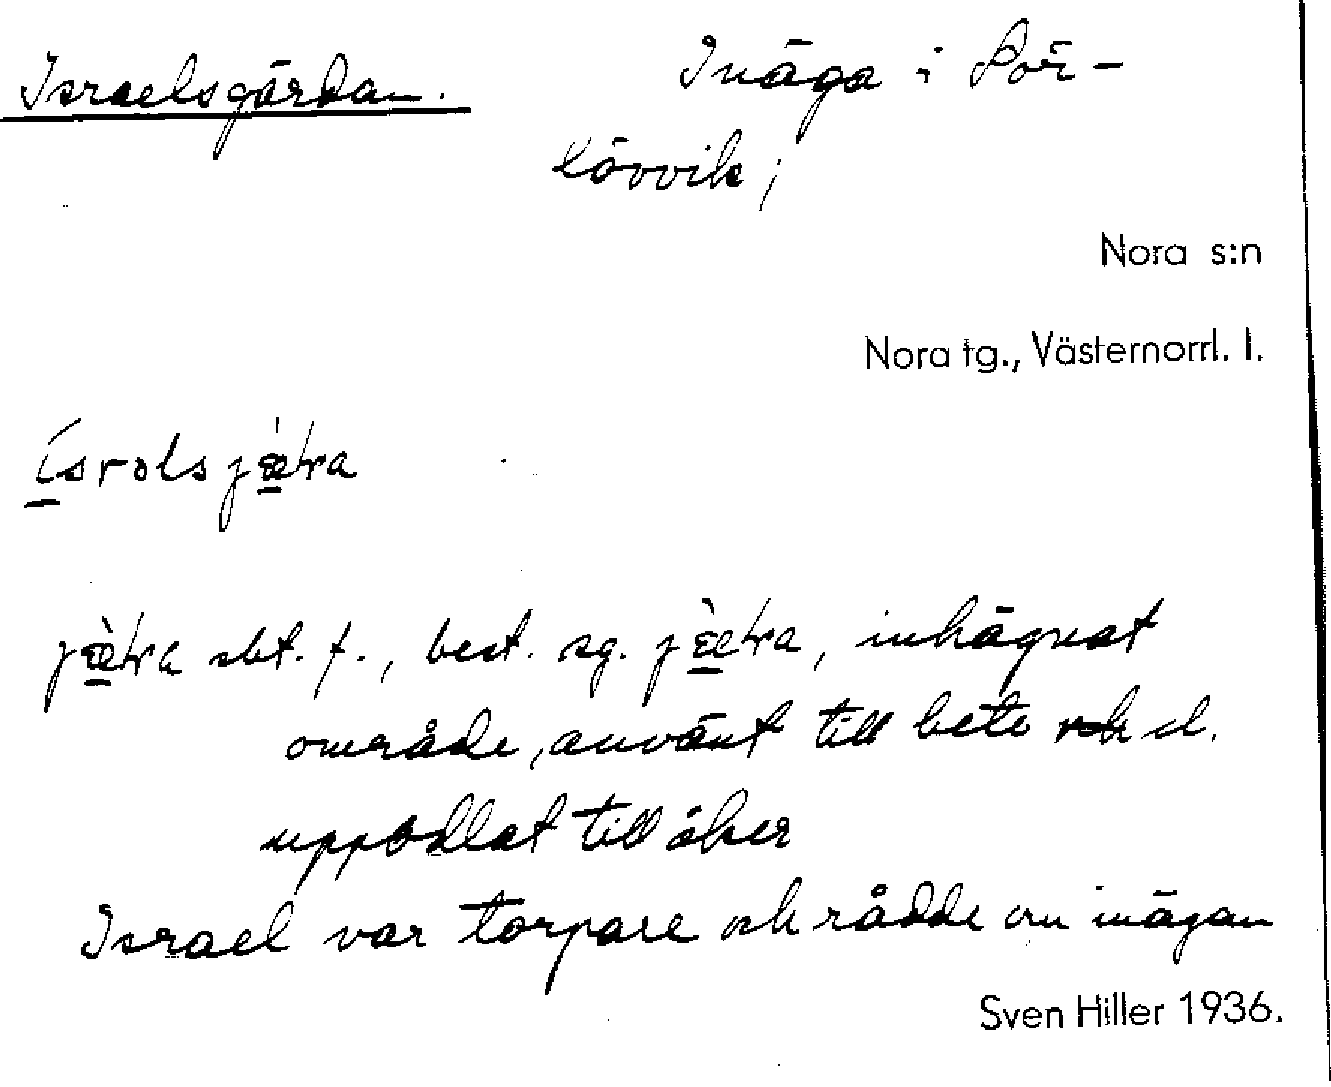 Israelsgärdan. Inäga i Bör-
lövvik;
Nora s:n
Nora tg., Västernorrl. l.
ísrəlsjæ̀ʈra
jæ̀ʈra sbt. f., best. sg. jæ̀ʈra, inhägnat
område, använt till bete och d.
uppodlat till åker
Israel var torpare och rådde om inägan
Sven Hiller 1936.